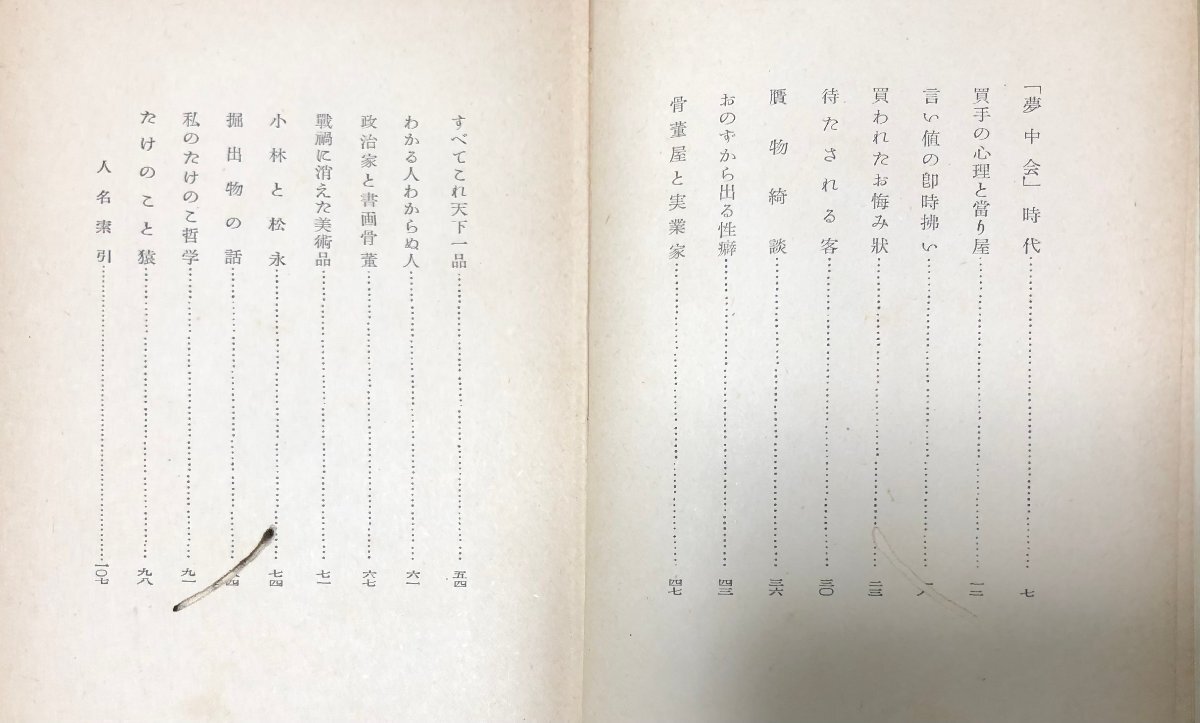 「夢中会」時代……七
買手の心理と當り屋……一二
言い値の卽時拂い……一八
買われたお悔み狀……二三
待たされる客……三〇
贋物綺談……三六
おのずから出る性癖……四三
骨董屋と実業家……四七
すべてこれ天下一品……五四
わかる人わからぬ人……六一
政治家と書画骨董……六七
戰禍に消えた美術品……七一
小林と松永……七四
掘出物の話……四
私のたけのこ哲学……九一
たけのこと猿……九八
人名索引……一〇七